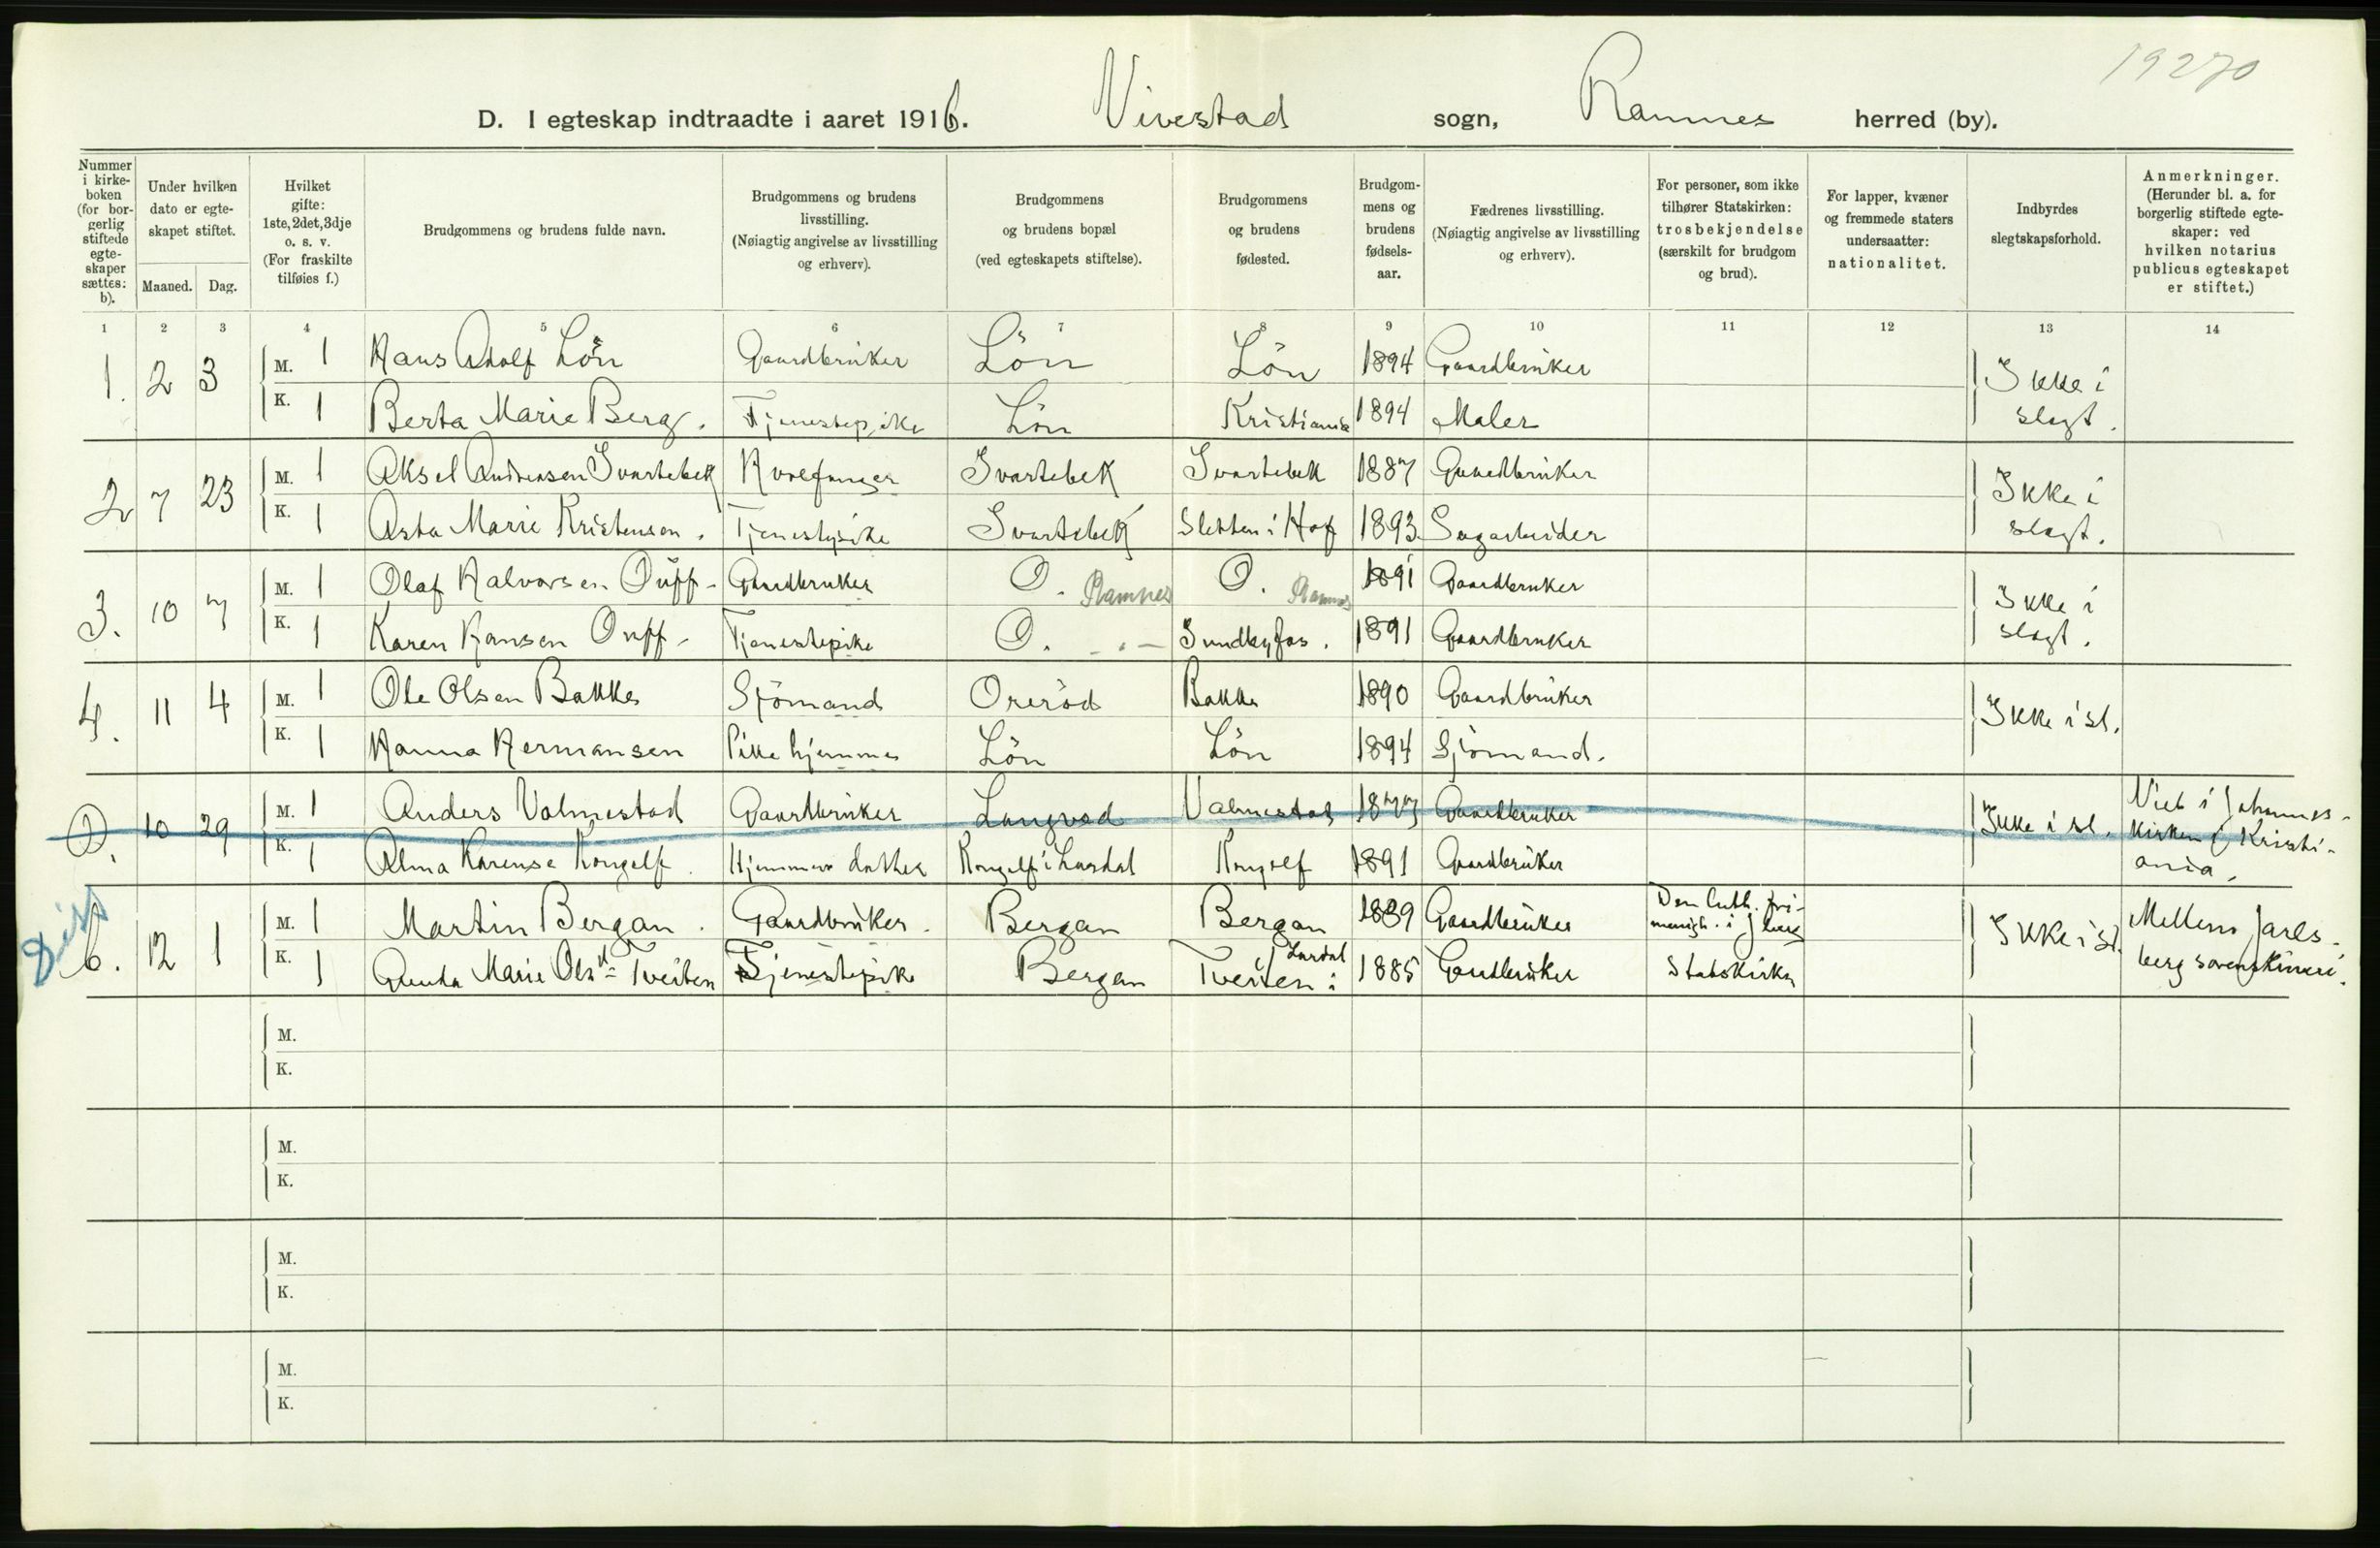 19270
D. I egteskap indtraadte i aaret 1916. Vivestad sogn, Ramnes herred (by).
Nummer i kirke-boken (for bor-gerlig stiftede egte-skaper sættes: b).
Under hvilken dato er egte-skapet stiftet.
Maaned. Dag.
Hvilket gifte: 1ste, 2det, 3dje o. s. v. (For fraskilte tilføies f.)
Brudgommens og brudens fulde navn.
Brudgommens og brudens livsstilling. (Nøiagtig angivelse av livsstilling og erhverv).
Brudgommens og brudens bopæl (ved egteskapets stiftelse).
Brudgommens og brudens fødested.
Brudgom-mens og brudens fødsels-aar.
Fædrenes livsstilling. (Nøiagtig angivelse av livsstilling og erhverv).
For personer, som ikke tilhører Statskirken: trosbekjendelse (særskilt for brudgom og brud).
For lapper, kvæner og fremmede staters undersaatter: nationalitet.
Indbyrdes slegtskapsforhold.
Anmerkninger. (Herunder bl. a. for borgerlig stiftede egte-skaper: ved hvilken notarius publicus egteskapet er stiftet.)
1 2 3 4 5 6 7 8 9 10 11 12 13 14
1. 2 3 M. 1 Hans Adolf Lön Gaardbruker Lön Lön 1894 Gaardbruker Ikke i
K. 1 Berta Marie Berg. Tjenestepike Lön Kristiania 1894 Maler slegt.
2 7 23 M. 1 Aksel Andreasen Svartebek Hvalfanger Svartebek Svartebek 1887 Gaardbruker Ikke i
K. 1 Asta Marie Kristensen. Tjenestepike Svartebek Sletten i Hof 1893 Sagarbeider slegt.
3. 10 7 M. 1 Olaf Halvorsen Ouff- Gaardbruker O. Ramnes O. Ramnes 1891 Gaardbruker Ikke i
K. 1 Karen Hansen Ouff- Tjenestepike O. - " - Sundbyfos. 1891 Gaardbruker slegt.
4. 11 4 M. 1 Ole Olsen Bakke Sjömand Oreröd Bakke 1890 Gaardbruker Ikke i sl.
K. 1 Hanna Hermansen Pike hjemme Lön Lön 1894 Sjömand.
10 29 M. 1 Anders Valmestad Gaardbruker Langved Valmestad 1877 Gaardbruker Ikke i sl. Viet i Johannes-
K. 1 Alma Karense Kongelf. Hjemmev datter Kongelf i Lardal Kongelf 1891 Gaardbruker kirken i Kristi-
ania.
Diss
6. 12 1 M. 1 Martin Bergan. Gaardbruker. Bergan Bergan 1889 Gaardbruker Den luth. fri-menigh. i Jberg Ikke i sl. Mellem Jarls-
K. 1 Gunda Marie Olsdt. Tveiten Tjenestepike Bergan Tveiten i Lardal 1885 Gaardbruker Statskirke berg sorenskriveri.
M.
K.
M.
K.
M.
K.
M.
K.